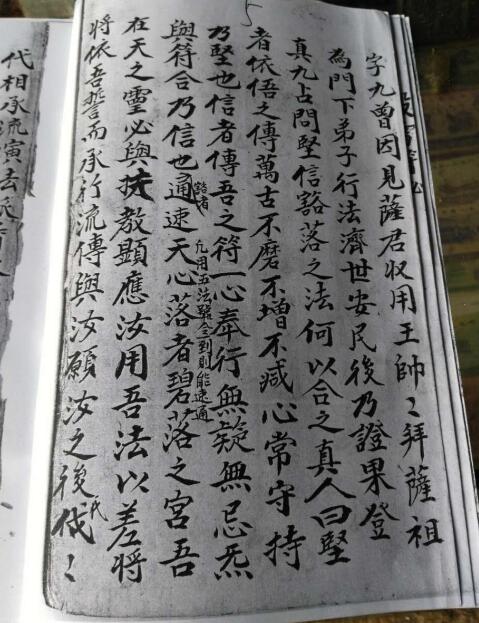 5
字九曾因見薩君収用王帥〻拜薩祖
為門下弟子行法濟世安民後乃證果登
真九占問堅信豁落之法何以合之真人曰堅
者依悟之傳萬古不磨不增不減心常守持
乃堅也信者傳吾之符一心奉行無疑無忌炁
與符合乃信也通速天心落者碧落之宮吾
豁者
凢用五法號令到則能速通
在天之靈必與扶教顯應汝用吾法以差將
將依吾誓而承行流傳與汝願汝之後代〻
氏
代相承流演去